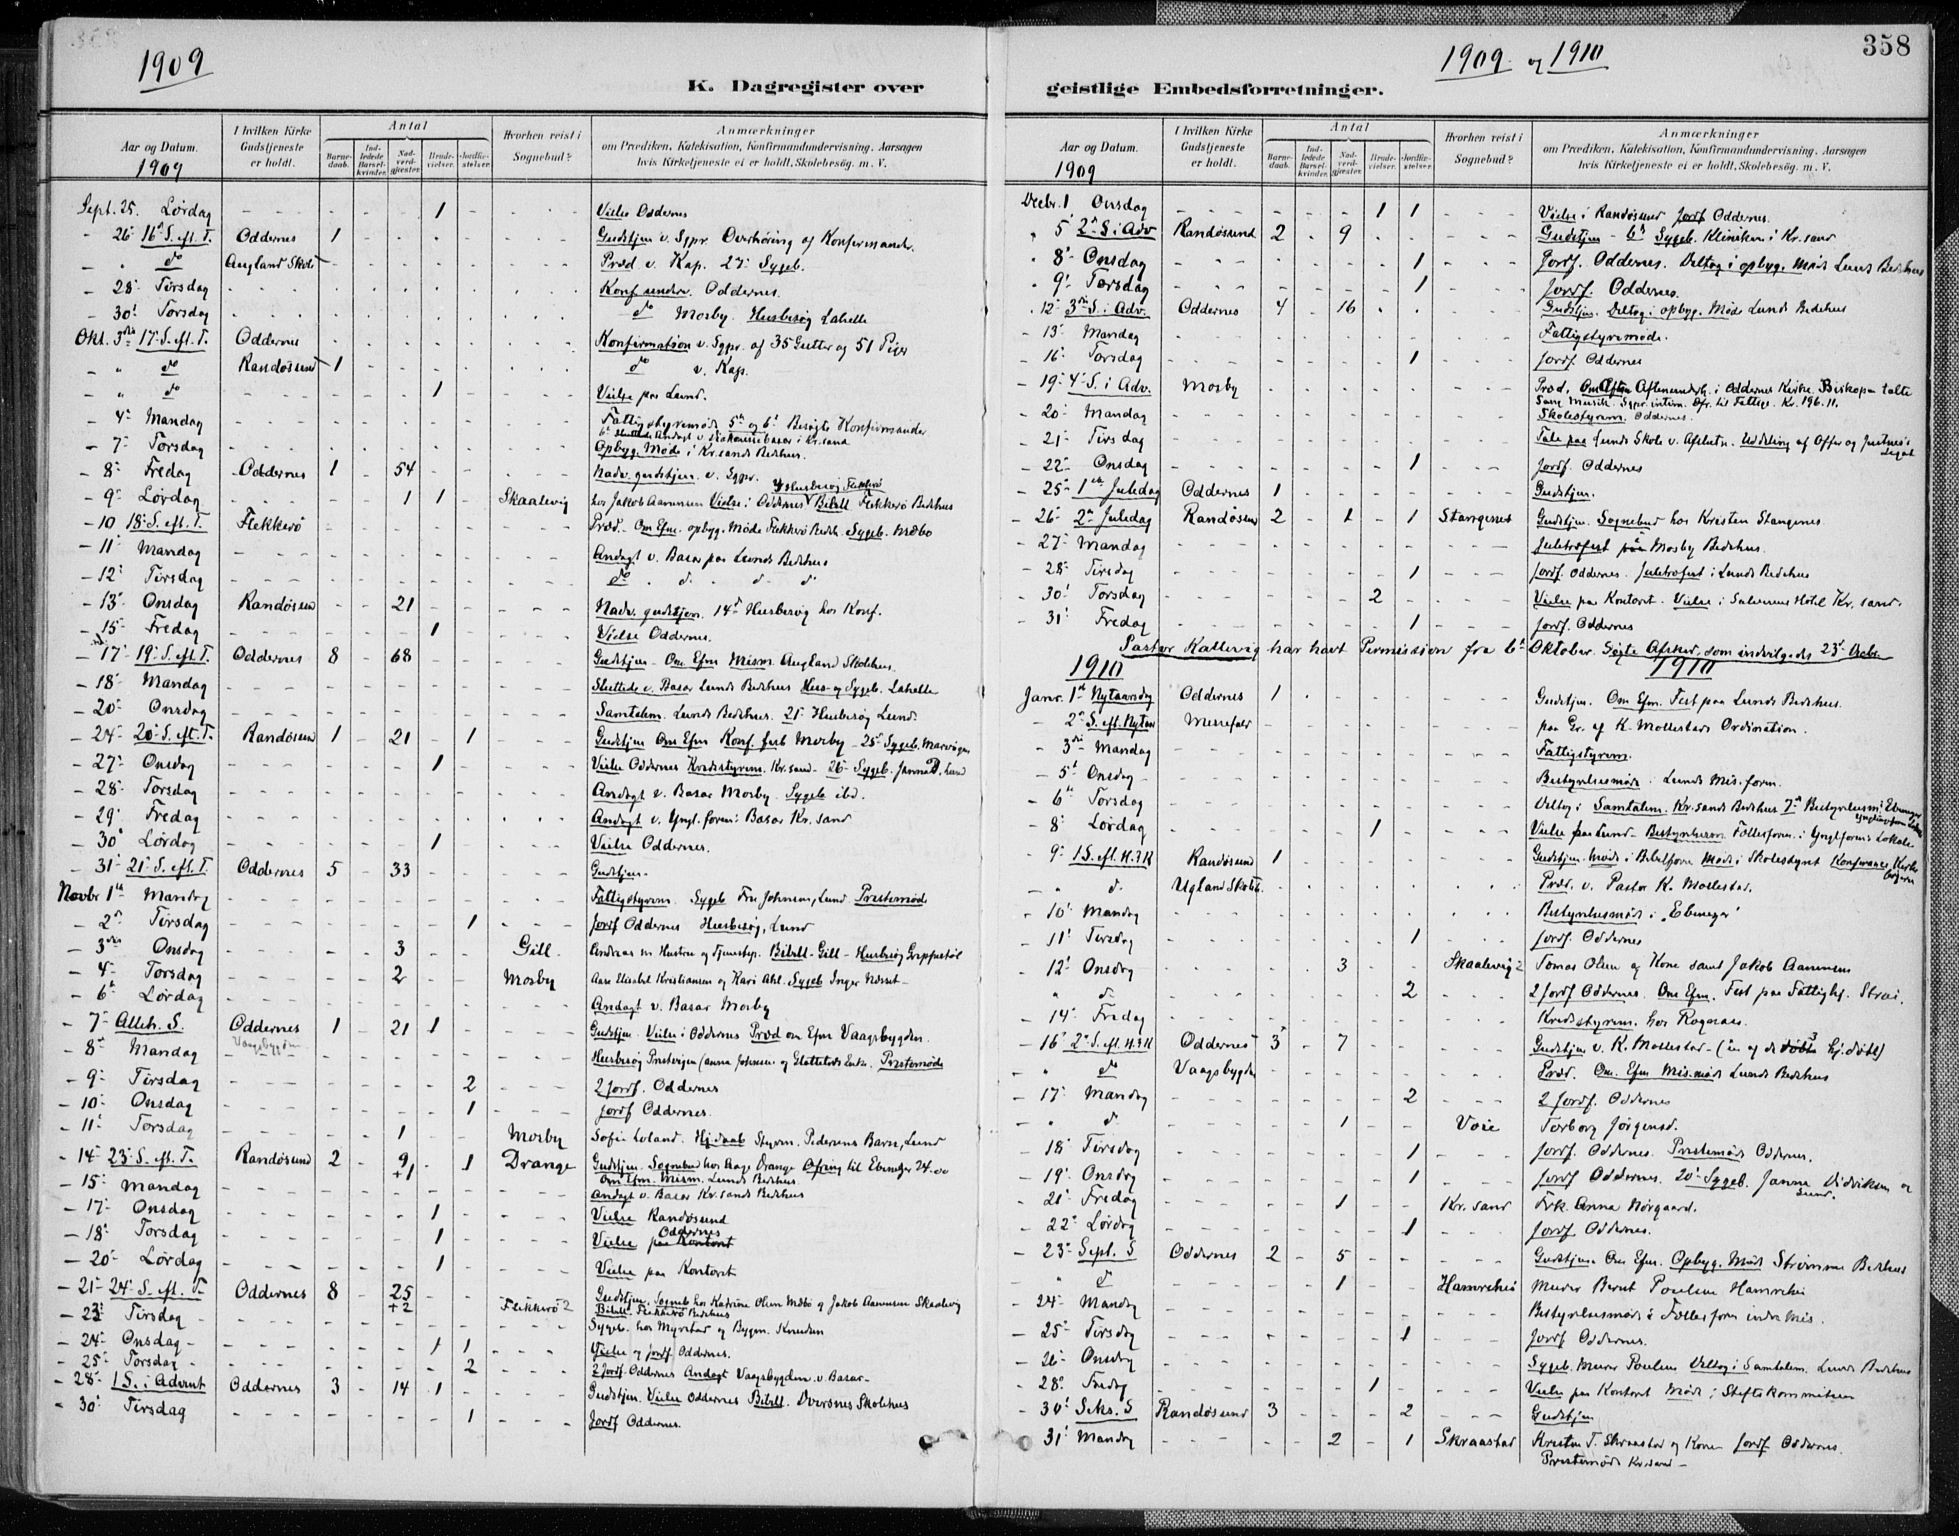 1909
K. Dagregister over
Aar og Datum.
1909
I hvilken Kirke Gudstjeneste er holdt.
Antal
Barnedaab.
Indledede Barselkvinder.
Nadverdgjæster.
Brudevielser.
Jordfæstelser.
Hvorhen reist i Sognebud?
Anmærkninger
om Prædiken, Katekisation, Konfirmandundervisning, Aarsagen
hvis Kirketjeneste ei er holdt, Skolebesøg. m. V.
Sept. 25. Lørdag 1 Vielse Oddernes
26 16 S. eft. T. Oddernes 1 Gudstjen v. Sgpr. Overhøring af Konfirmander
" do Augland Skole Præd v. Kap. 27 Sygeb.
28 Tirsdag Konf. underv. Oddernes.
30 Torsdag do Mosby. Husbesøg Lahelle
Okt. 3die 17 S. eft. T. Oddernes Konfirmation v. Sgpr. af 35 Gutter og 51 Piger
" do Randøsund 1 do v. Kap.
" do 1 Vielse paa Lund.
4 Mandag Fattigstyremøde 5te og 6te Besøgte Konfirmander
7 Torsdag Opbyg. Møde i Kr.sands Bedehus.
8 Fredag Oddernes 1 54 Nadv. gudstjen. v. Sgpr.
9 Lørdag 1 1 Skaalevig hos Jakob Aamunsen Vielse i Oddernes Bibell Flekkerø Bedehus
10 18 S. eft. T. Flekkerø Præd. Om Efm. opbyg. Møde Flekkerø Bedeh. Sygeb. Mæbo
11 Mandag Andagt v. Basar paa Lunds Bedehus
12 Tirsdag do d. d d
13 Onsdag Randøsund 21 Nadv. gudstjen. 14d Husbesøg hos Konf.
15 Fredag 1 Vielse Oddernes.
17 19 S. eft. T. Oddernes 8 68 Gudstjen - Om Efm Mism. Augland Skolehus.
18 Mandag Sluttede v. Basar Lunds Bedehus Hus- og Sygeb. Lahelle
20 Onsdag Samtalem. Lunds Bedehus. 21 Husbesøg Lund.
24 20 S. eft. T. Randøsund 1 21 1 Gudstjen Om Efm Konf. forb Mosby - 25 Sygeb. Marvigen
27 Onsdag 1 Vielse Oddernes Kredsstyrem. Kr.sand - 26 Sygeb. Lund
28 Torsdag Andagt v. Basar Mosby. Sygeb ibd.
29 Fredag Andagt v. Yngl. foren: Basar Kr.sand
30 Lørdag 1 Vielse Oddernes.
31 21 S. eft. T. Oddernes 5 33 Gudstjen.
Novbr 1ste Mandag Fattigstyrem. Sygeb Fru Johnsen, Lund Prestemøde
2 Tirsdag 1 Jordf Oddernes Husbesøg, Lund
3die Onsdag 3 Gill Andreas m Hustru og Tjenestep. Bibell - Gill - Husbesøg
4 Torsdag 2 Mosby Aase Elisabet Kristiansen og Kari Ahl. Sygeb Inger
6 Lørdag Andagt v. Basar Mosby
7 Alleh. S. Oddernes 1 21 1 Gudstjen. Vielse i Oddernes Præd om Efm Vaagsbygden
Vaagsbygden
8 Mandag Husbesøg Prestvigen Prestemøde
9 Tirsdag 2 2 Jordf. Oddernes
10 Onsdag 1 Jordf Oddernes.
11 Torsdag 1 Mosby Sofie Loland. Hj.daab Styrm. Pedersens Barn, Lund
14 23 S. eft. T. Randøsund 2 9 +1 1 Drange Gudstjen. Sognebud hos Aage Drange Ofring til Ebenezer 24.00
Om Efm. Mism. Lunds Bedehus.
15 Mandag Andagt v. Basar Kr.sands Bedehus
17 Onsdag 1 Vielse Randøsund
18 Torsdag 1 Vielse paa Kontoret Oddernes
20 Lørdag 1 Vielse paa Kontoret
21 24 S. eft. T. Oddernes 8 25 +2 Flekkerø 2 Gudstjen. Sogneb hos Katrine Olsen Mæbø og Jakob Aamunsen Skaalevig
Bibell. Flekkerø Bedehus
23 Tirsdag Sygeb. hos Myrstad og Bygm. Knudsen
24 Onsdag 1 1 Vielse og Jordf. Oddernes.
25 Torsdag 2 2 Jordf. Oddernes Andagt Vaagsbygden v. Basar
28 1 S. i Advent Oddernes 3 14 1 Gudstjen. Vielse Oddernes Bibell. Dversnes Skolehus
30 Tirsdag 1 Jordf Oddernes.
1909 og 1910
358
geistlige Embedsforretninger.
Aar og Datum.
1909
I hvilken Kirke Gudstjeneste er holdt.
Antal
Barnedaab.
Indledede Barselkvinder.
Nadverdgjæster.
Brudevielser.
Jordfæstelser.
Hvorhen reist i Sognebud?
Anmærkninger
om Prædiken, Katekisation, Konfirmandundervisning, Aarsagen
hvis Kirketjeneste ei er holdt, Skolebesøg. m. V.
Decbr. 1 Onsdag 1 1 Vielse i Randøsund Jordf Oddernes.
5 2 S. i Adv Randøsund 2 9 Gudstjen - 6te Sygeb. Kliniken i Kr.sand
8 Onsdag 1 Jordf. Oddernes. Deltog i opbyg. Møde Lunds Bedehus
9 Torsdag 1 Jordf. Oddernes.
12 3die S. i Adv. Oddernes 4 16 Gudstjen. Deltog i opbyg. Møde Lunds Bedehus
13 Mandag Fattigstyremøde.
16 Torsdag 1 Jordf. Oddernes
19 4 S. i Adv. Mosby Præd. Om Aften Aftenunderh. i Oddernes Kirke. Biskopen talte
Sang Musik. Ofr. til Fattige. Kr. 196.11.
20 Mandag Skolestyrem. Oddernes.
21 Tirsdag Tale paa Lunds Skole v. Afslutn. Uddeling af Offer og Legat
22 Onsdag 1 Jordf. Oddernes
25 1ste Juledag Oddernes 1 Gudstjen.
26 2 Juledag Randøsund 2 1 1 Stangenes Gudstjen. Sognebud hos Kristen Stangenes
27 Mandag Juletræfest paa Mosby Bedehus.
28 Tirsdag 1 Jordf. Oddernes. Juletræfest i Lunds Bedehus
30 Torsdag 2 Vielse paa Kontoret. Vielse i Salvesens Hotel Kr.sand.
31 Fredag 1 Jordf. Oddernes
Pastor Kallevig har havt Permission fra 6te Oktober. Søgte Afsked, som indvilgedes 23 Decbr.
1910 1910
Janr. 1ste Nytaarsdag Oddernes 1 Gudstjen. Om Efm. Fest paa Lunds Bedehus.
2 S. eft. Nytaar Messefald paa Gr. af K. Mollestads Ordination.
3die Mandag Fattigstyrem.
5 Onsdag Bestyrelsesmøde. Lunds Mis. foren.
6te Torsdag Deltog i Samtalem. Kr.sands Bedehus 7 Bestyrelsesm. i Ebenezer
8 Lørdag 1 Vielse paa Lund - Bestyrelsesm Fællesforen. i Yngl.foren's Lokale
9 1 S. eft. H.3K Randøsund 1 Gudstjen. Møde i Bibelforen Møde i Skolestyret
" d. Ugland Skoleh. Præd. v. Pastor K. Mollestad.
10 Mandag Bestyrelsesmøde i "Ebenezer"
11 Tirsdag 1 Jordf. Oddernes
12 Onsdag 3 Skaalevig 2 Tomas Olsen og Kone samt Jakob Aamunsen
" d. 2 2 Jordf Oddernes. Om Efm. Fest paa Fattighj. Strai.
14 Fredag Kredsstyrem. hos Rognaas.
16 2 S. eft. H.3K Oddernes 3 7 Gudstjen v. K. Mollestad - (en af de 3 hj. døbt)
" do Vaagsbygden Præd. Om Efm Mis.møde Lunds Bedehus
17 Mandag 2 2 Jordf. Oddernes
" d 1 Voie Torborg Jørgensd.
18 Tirsdag 1 Jordf. Oddernes. Prestemøde Oddernes.
19 Onsdag 1 Jordf Oddernes. 20 Sygeb. Janna Didriksen
Lund.
21 Fredag 1 Kr. sand Frk. Anna Nørgaard.
22 Lørdag 1 Jordf. Oddernes.
23 Sept. S Oddernes 2 5 Gudstjen. Om Efm. Opbyg. Møde Strømme Bedehus
" d 1 Hamrehei Murer Bernt Poulsen Hamrehei
24 Mandag Bestyrelsesmøde i Fællesforen indre Mis.
25 Tirsdag 1 Jordf Oddernes.
26 Onsdag Sygeb. Murer Poulsen Deltog i Samtalem. Lunds Bedehus
28 Fredag 1 Vielse paa Kontoret Møde i Stiftskommiteen
30 Seks. S Randøsund 3 2 Gudstjen
31 Mandag 2 1 Skraastad Kristen T. Skraastad og Kone Jordf Oddernes
Prestemøde Kr.sand